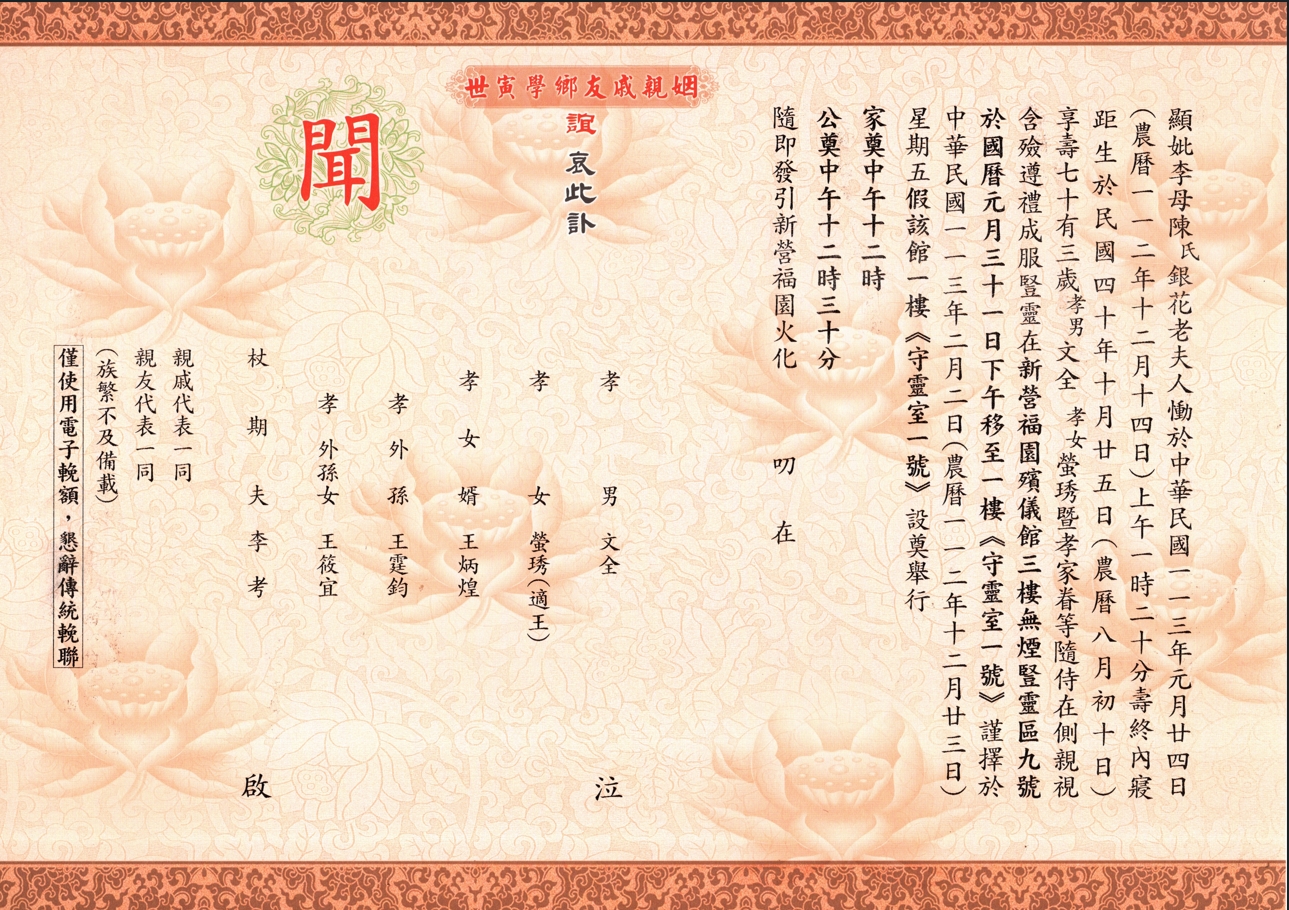 顯妣李母陳氏銀花老夫人慟於中華民國一一三年元月廿四日
(農曆一一二年十二月十四日)上午一時二十分壽終內寢
距生於民國四十年十月廿五日(農曆八月初十日)
享壽七十有三歲孝男文全 孝女螢琇暨孝家眷等隨侍在側親視
含殮遵禮成服豎靈在新營福園殯儀館三樓無煙豎靈區九號
於國曆元月三十一日下午移至一樓《守靈室一號》謹擇於
中華民國一一三年二月二日(農曆一一二年十二月廿三日)
星期五假該館一樓《守靈室一號》設奠舉行
家奠中午十二時
公奠中午十二時三十分
隨即發引新營福園火化 叨在
姻親戚友鄉學寅世
誼 哀此訃
聞
孝男 文全
孝女 螢琇(適王)
孝女婿 王炳煌
孝外孫 王霆鈞
孝外孫女 王筱宜
泣
杖期夫李考
啟
親戚代表一同
親友代表一同
(族繁不及備載)
僅使用電子輓額，懇辭傳統輓聯